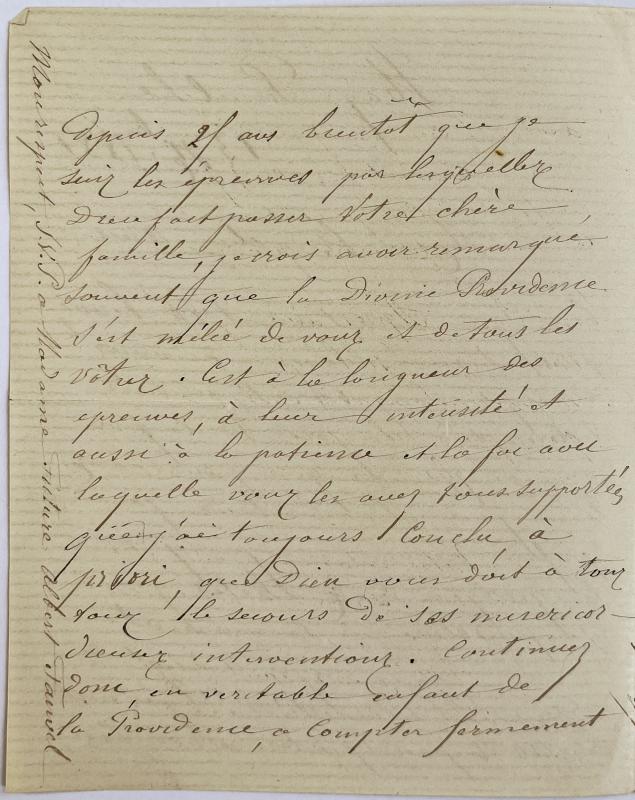 Depuis 25 ans bientôt que je
suis les épreuves par lesquelles
Dieu fait passer Votre chère
famille, je crois avoir remarqué
souvent que la Divine Providence
s'est mêlé de vous et de tous les
vôtres. C'est à la longueur des
epreuves, à leur intensité et
aussi à la patience et la foi avec
laquelle vous les avez tous supportées
que j'ai toujours Conclu à
priori, que Dieu vous doit à tous
tous le secours de ses misericor-
dieuses interventions. Continuez
donc, en veritable enfant de
la Providence, a Compter fermement
Mon respect, S.V.P. a Madame future Albert